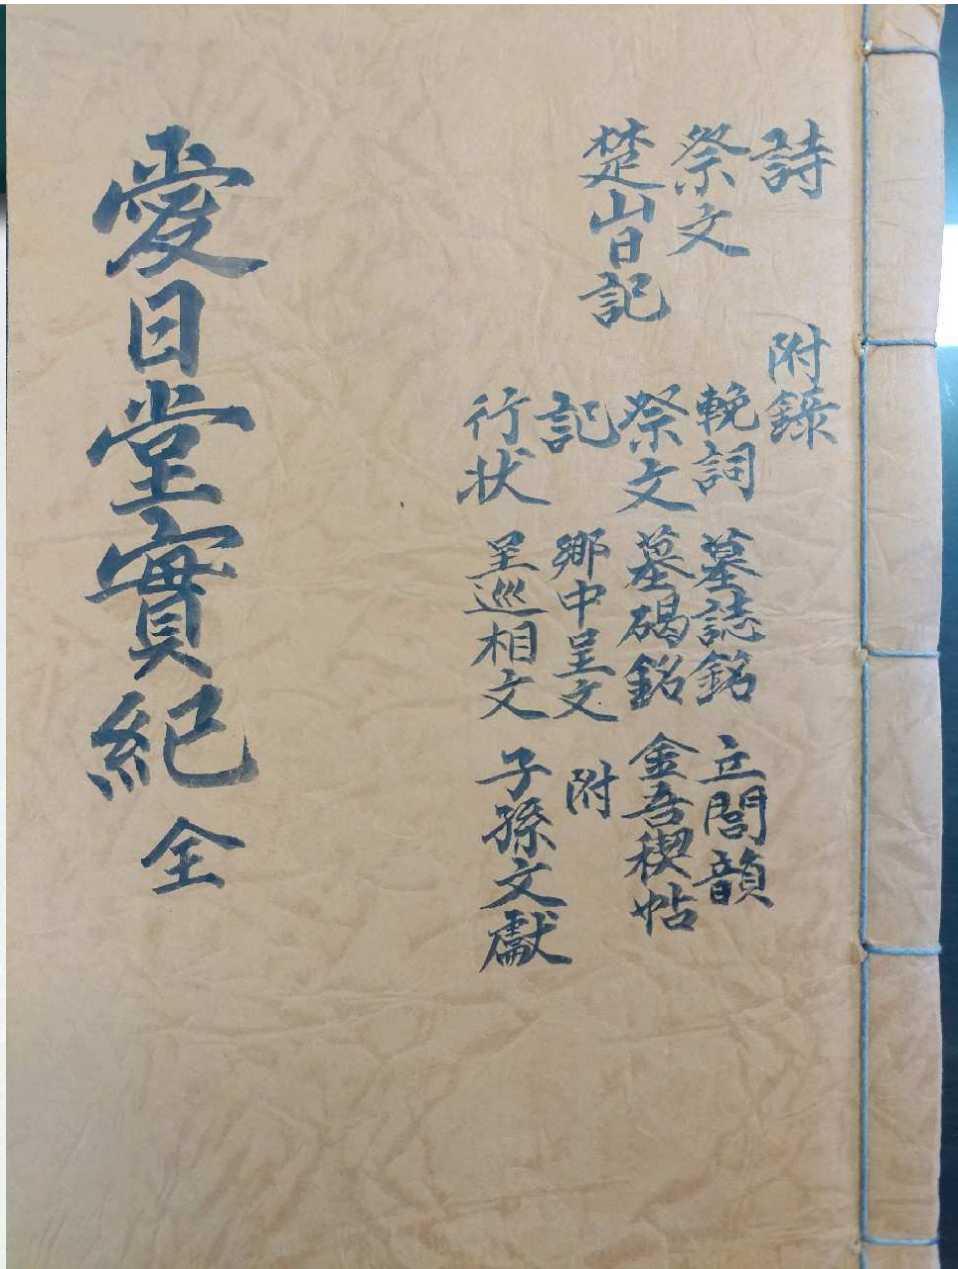 詩
祭文
楚山日記
附錄
輓詞
祭文
記
行状
墓誌銘
墓碣銘
鄉中呈文
呈巡相文
立閭韻
金吾稧帖
附
子孫文獻
愛日堂實紀 全